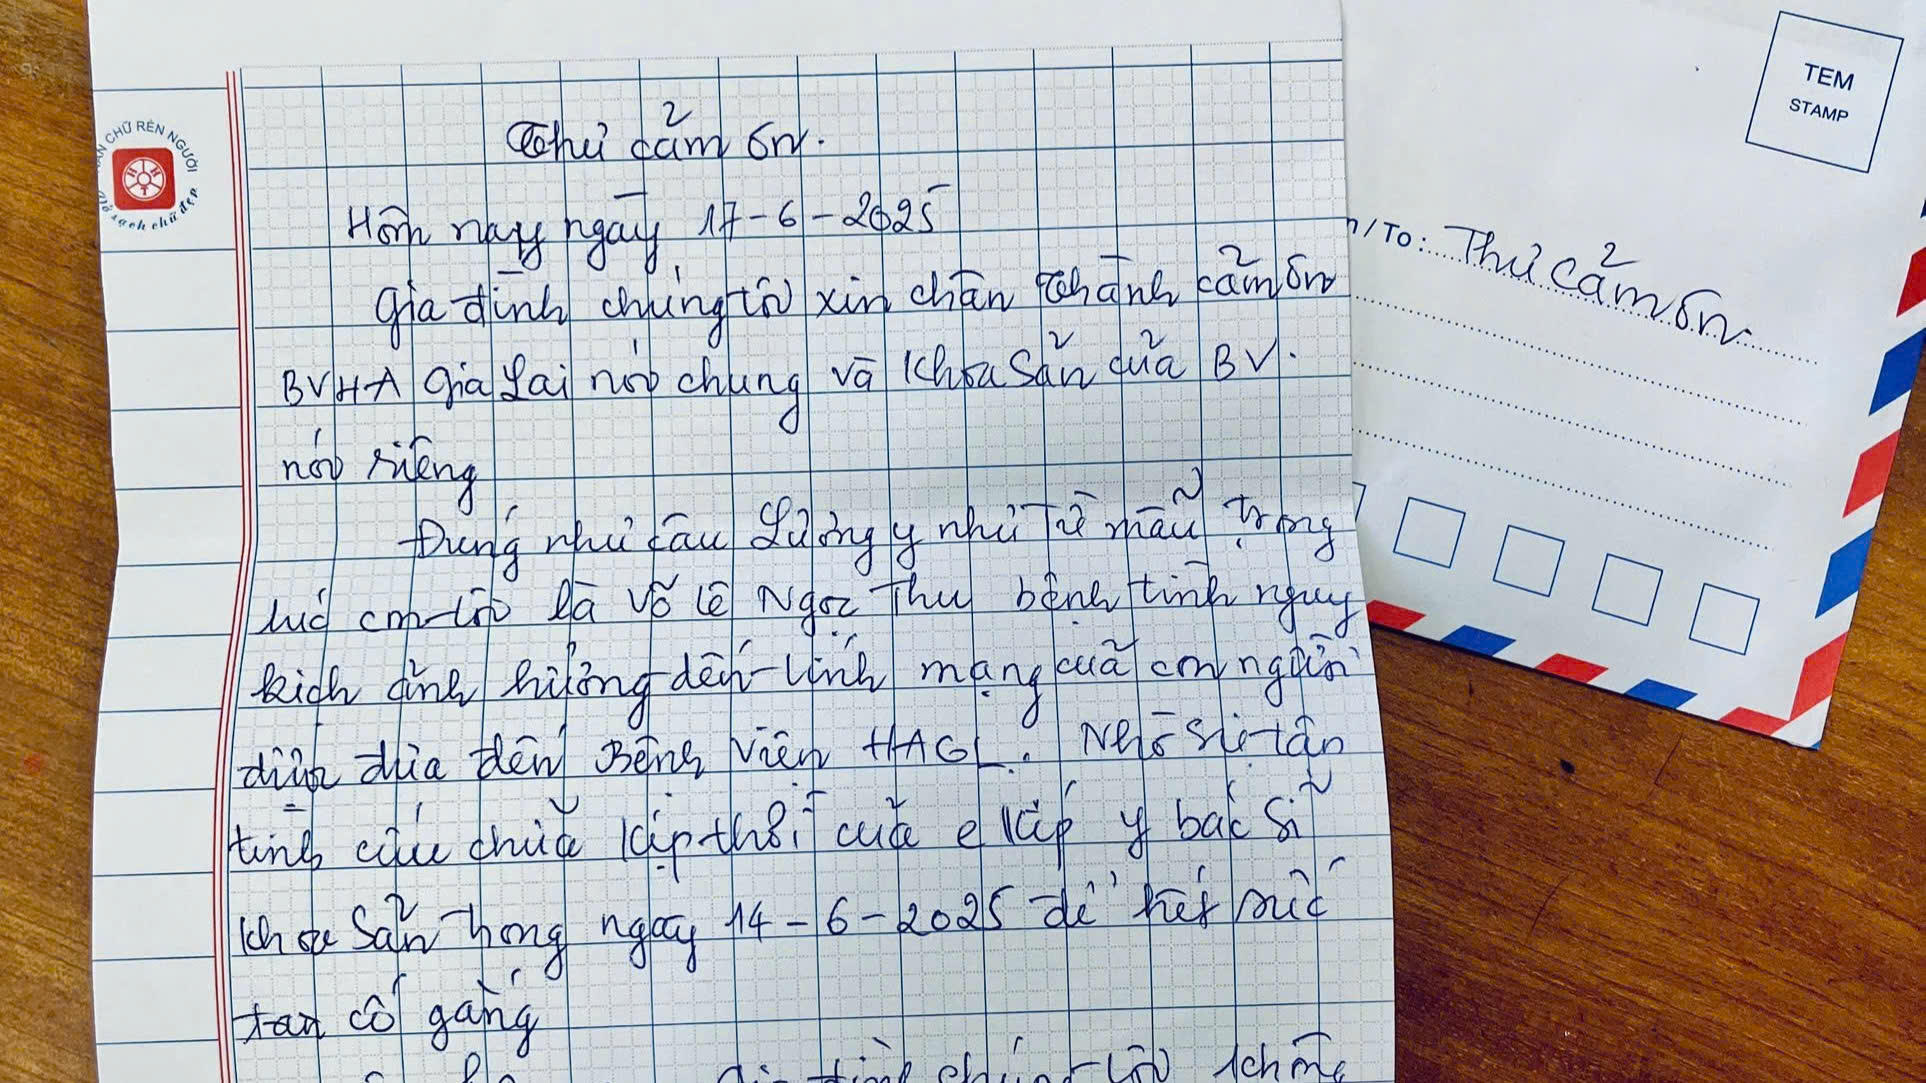 Thư cảm ơn.
Hôm nay ngày 17-6-2025
gia đình chúng tôi xin chân thành cảm ơn
BVHA Gia Lai nói chung và khoa Sản của BV.
nói riêng
Đúng như câu Lương y như Từ mẫu trong
lúc con tôi là Võ Lê Ngọc Thu bệnh tình nguy
kịch ảnh hưởng đến tính mạng của con người
được đưa đến Bệnh Viện HAGL. Nhờ sự tận
tình cứu chữa kịp thời của e kíp y bác sĩ
khoa Sản trong ngày 14-6-2025 để hết sức
cố gắng
gia đình chúng tôi không
CHỮ RÈN NGƯỜI
HHT
sạch chữ đẹp
TEM
STAMP
/To: Thư cảm ơn